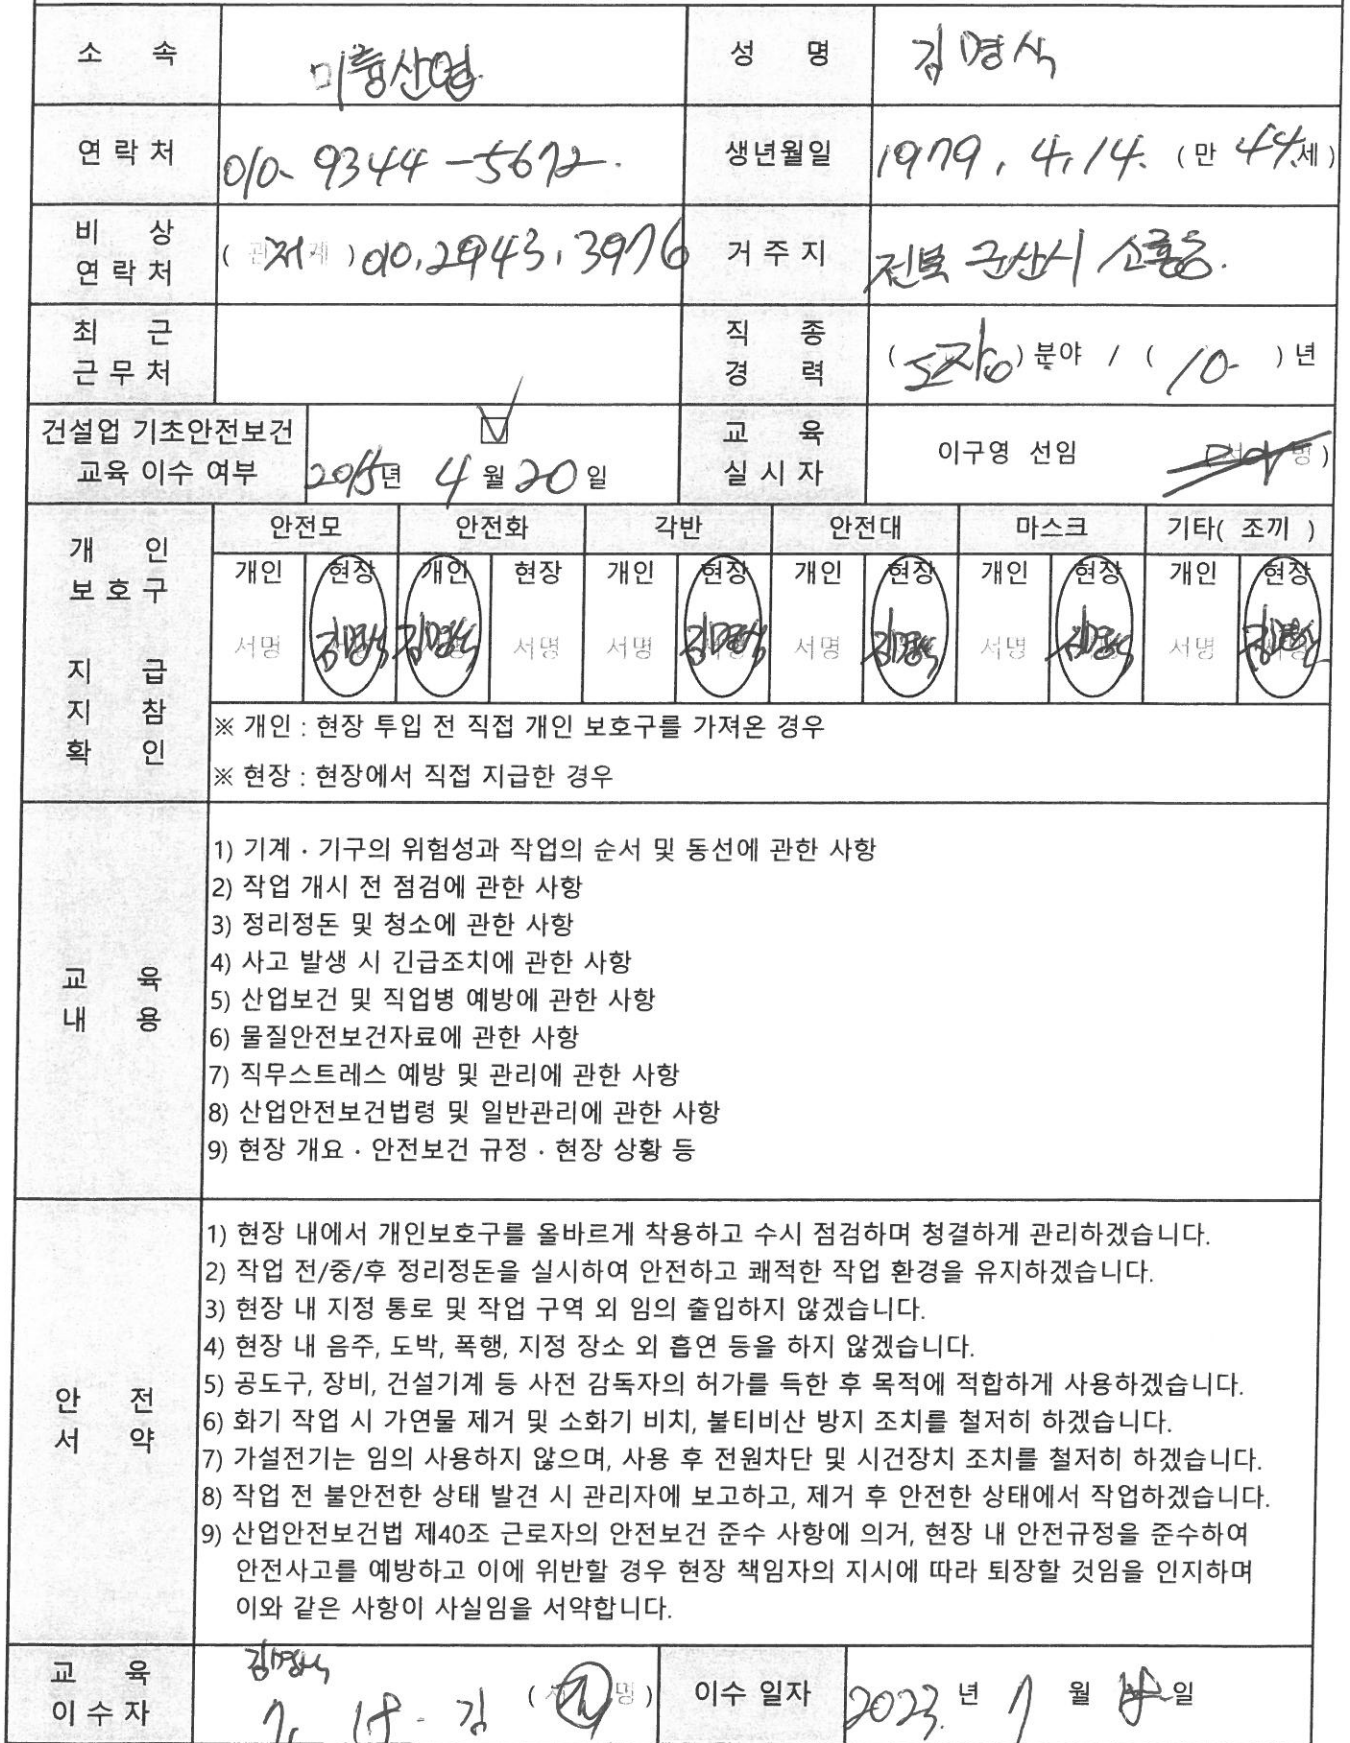 소 속 미흥산업 성 명 김명식
연락처 010-9344-5672. 생년월일 1979. 4. 14. (만 44세)
비 상
연락처 (관계 처) 010.2943.3976 거주지 전북 군산시 소룡동.
최 근
근무처
직 종
경 력 (도장) 분야 / (10-) 년
건설업 기초안전보건
교육 이수 여부 2015년 4월 20일
교 육
실시자 이구영 선임 (서 명)
개 인
보호구
지 급
지 참
확 인
안전모 안전화 각반 안전대 마스크 기타( 조끼 )
개인 현장 개인 현장 개인 현장 개인 현장 개인 현장 개인 현장
서명 김명식 김명식 서명 서명 김명식 서명 김명식 서명 김명식 서명 김명식
※ 개인 : 현장 투입 전 직접 개인 보호구를 가져온 경우
※ 현장 : 현장에서 직접 지급한 경우
교 육
내 용
1) 기계 · 기구의 위험성과 작업의 순서 및 동선에 관한 사항
2) 작업 개시 전 점검에 관한 사항
3) 정리정돈 및 청소에 관한 사항
4) 사고 발생 시 긴급조치에 관한 사항
5) 산업보건 및 직업병 예방에 관한 사항
6) 물질안전보건자료에 관한 사항
7) 직무스트레스 예방 및 관리에 관한 사항
8) 산업안전보건법령 및 일반관리에 관한 사항
9) 현장 개요 · 안전보건 규정 · 현장 상황 등
안 전
서 약
1) 현장 내에서 개인보호구를 올바르게 착용하고 수시 점검하며 청결하게 관리하겠습니다.
2) 작업 전/중/후 정리정돈을 실시하여 안전하고 쾌적한 작업 환경을 유지하겠습니다.
3) 현장 내 지정 통로 및 작업 구역 외 임의 출입하지 않겠습니다.
4) 현장 내 음주, 도박, 폭행, 지정 장소 외 흡연 등을 하지 않겠습니다.
5) 공도구, 장비, 건설기계 등 사전 감독자의 허가를 득한 후 목적에 적합하게 사용하겠습니다.
6) 화기 작업 시 가연물 제거 및 소화기 비치, 불티비산 방지 조치를 철저히 하겠습니다.
7) 가설전기는 임의 사용하지 않으며, 사용 후 전원차단 및 시건장치 조치를 철저히 하겠습니다.
8) 작업 전 불안전한 상태 발견 시 관리자에 보고하고, 제거 후 안전한 상태에서 작업하겠습니다.
9) 산업안전보건법 제40조 근로자의 안전보건 준수 사항에 의거, 현장 내 안전규정을 준수하여
안전사고를 예방하고 이에 위반할 경우 현장 책임자의 지시에 따라 퇴장할 것임을 인지하며
이와 같은 사항이 사실임을 서약합니다.
교 육
이수자
김명식
7. 18. 김 (서명)
이수 일자 2023. 년 7 월 일